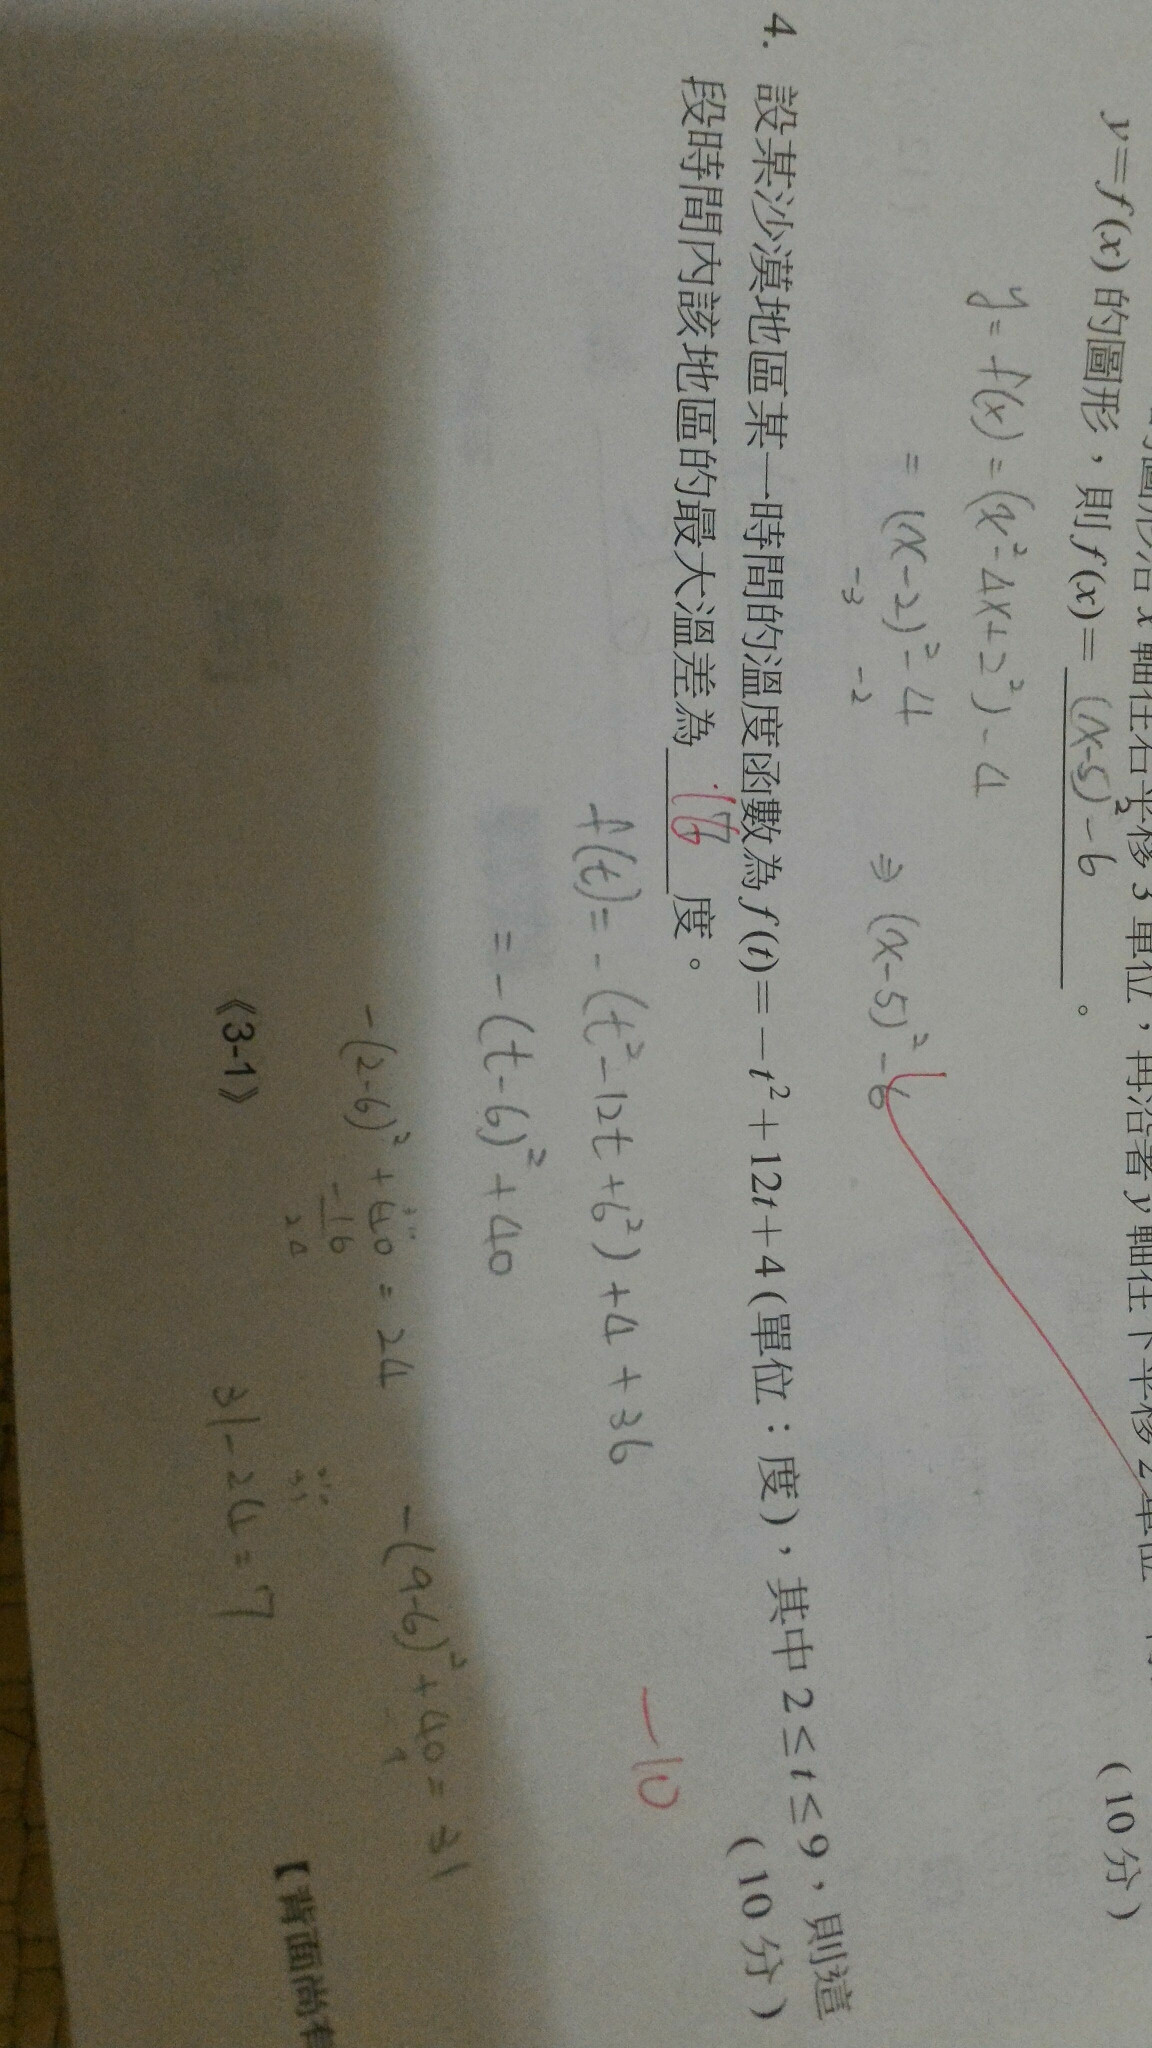 的圖形沿 x 軸往右平移 3 單位，再沿著 y 軸往下平移 2 單位
y=f(x) 的圖形，則 f(x)= (x-5)²-6 。
(10分)
y = f(x) = (x²-4x+2²)-4
= (x-2)²-4 ⇒ (x-5)²-6
-3 -2
4. 設某沙漠地區某一時間的溫度函數為 f(t)=-t²+12t+4 (單位：度)，其中 2≤t≤9，則這
段時間內該地區的最大溫差為 16 度。
(10分)
f(t) = -(t²-12t+6²)+4+36
-10
= -(t-6)²+40
-(2-6)²+40 = 24
-16
24
-(9-6)²+40 = 31
31-24=7
《3-1》
【背面尚有